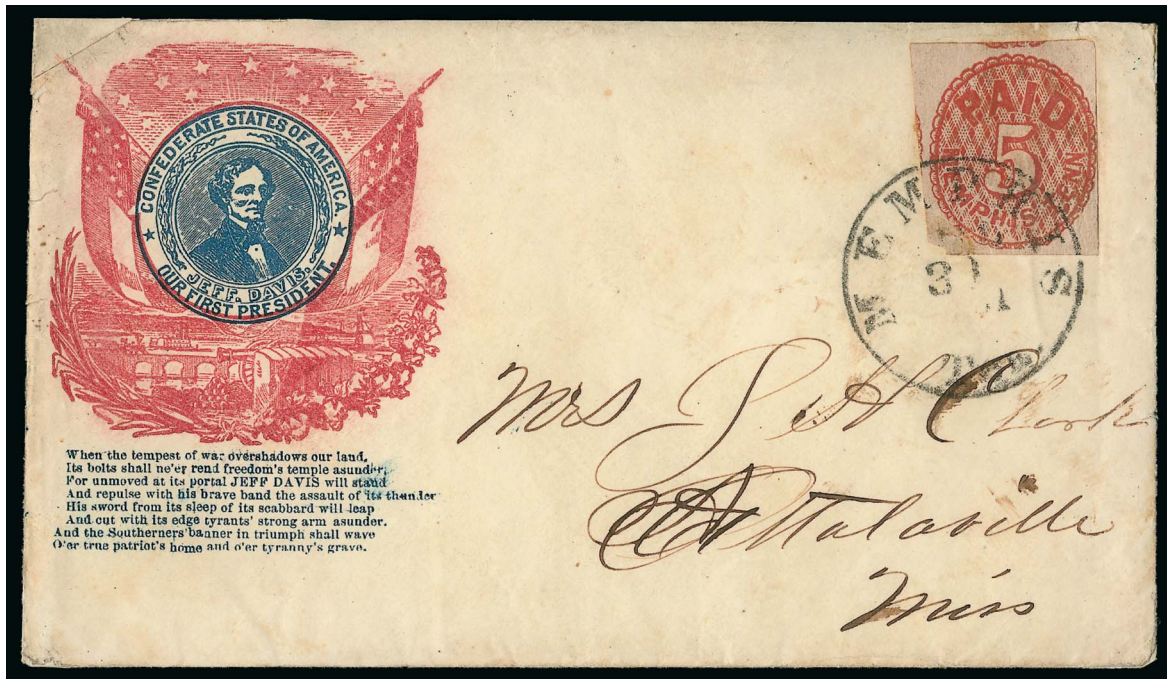 CONFEDERATE STATES OF AMERICA.
JEFF. DAVIS.
OUR FIRST PRESIDENT.
When the tempest of war overshadows our land,
Its bolts shall ne'er rend freedom's temple asunder;
For unmoved at its portal JEFF DAVIS will stand
And repulse with his brave band the assault of its thunder
His sword from its sleep of its scabbard will leap
And cut with its edge tyrants' strong arm asunder.
And the Southerners' banner in triumph shall wave
O'er true patriot's home and o'er tyranny's grave.
PAID
5
MEMPHIS
TENN
MEMPHIS
30
Mrs S H Clark
Attalaville
Miss